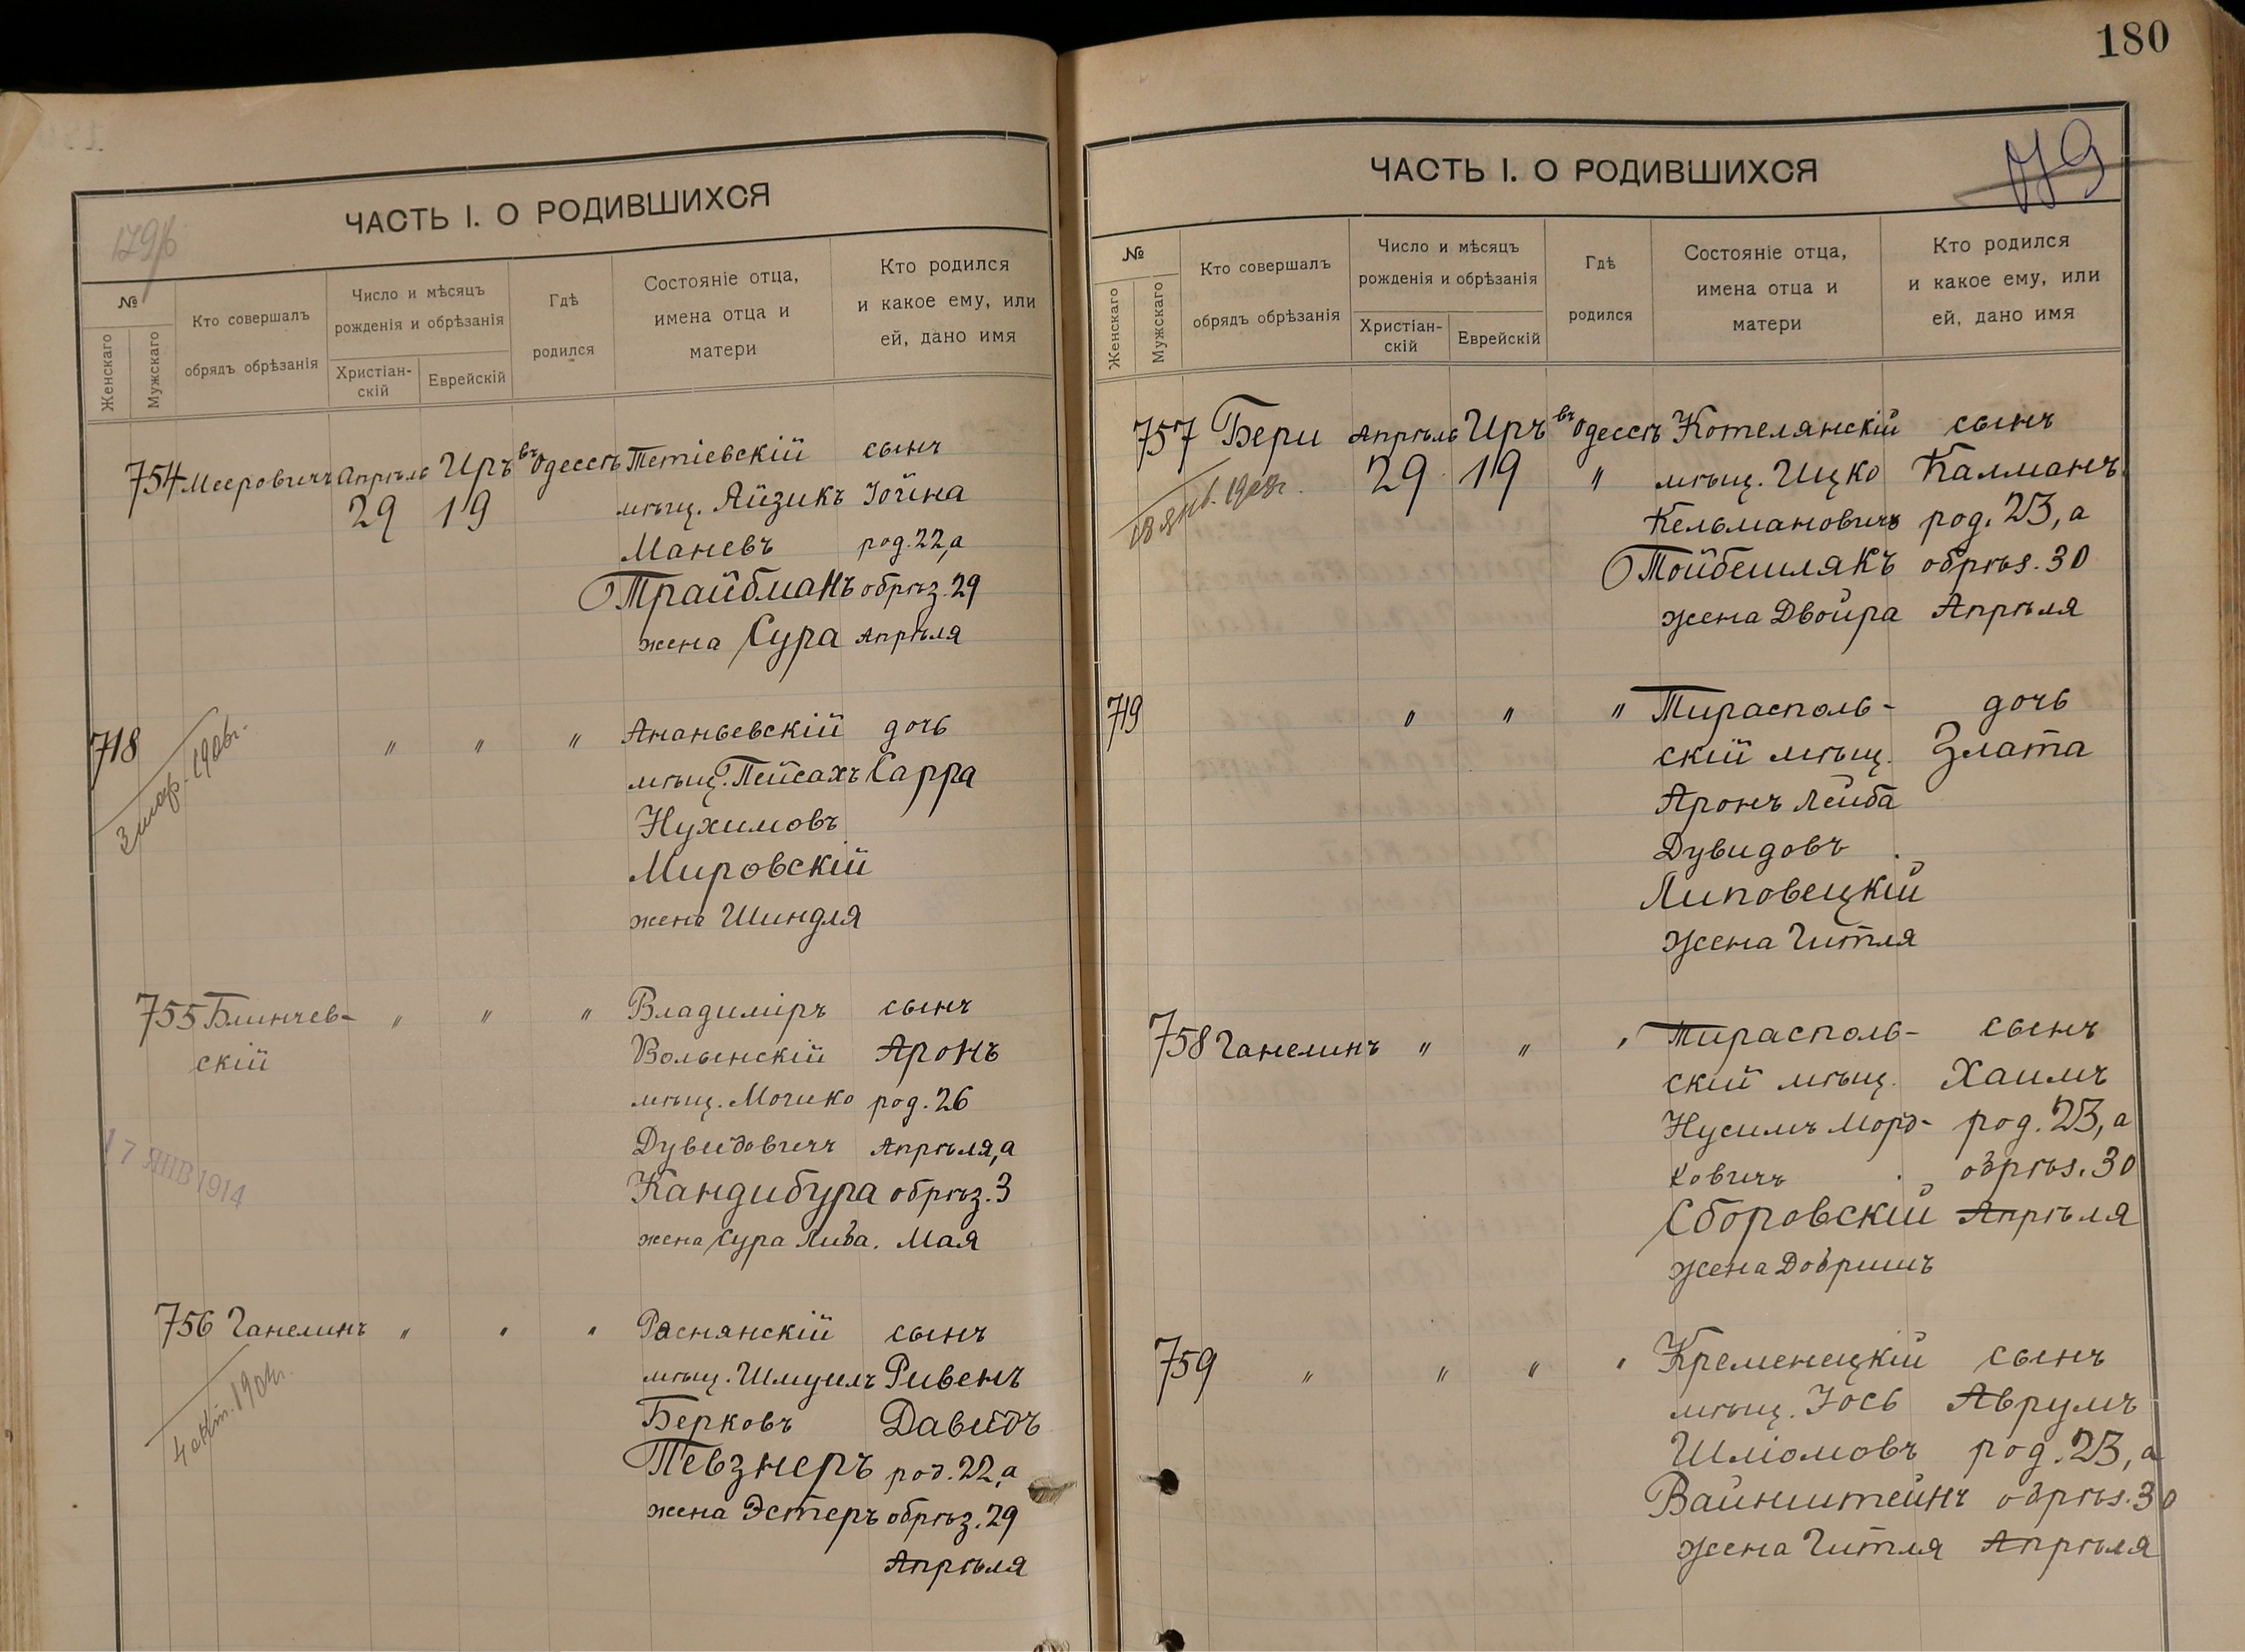 180
ЧАСТЬ I. О РОДИВШИХСЯ
№
Женскаго
Мужскаго
Кто совершалъ
обрядъ обрѣзанія
Число и мѣсяцъ
рожденія и обрѣзанія
Христіан-
скій
Еврейскій
Гдѣ
родился
Состояніе отца,
имена отца и
матери
Кто родился
и какое ему, или
ей, дано имя
754 Мееровичъ Апрѣль Иръ въ Одессѣ Тетіевскій сынъ
29 19 мѣщ. Айзикъ Іойна
Маневъ род. 22, а
Трайбманъ обрѣз. 29
жена Сура Апрѣля
718 " " " Ананьевскій дочь
мѣщ. Пейсахъ Сарра
3 мар. 1906г.
Нухимовъ
Мировскій
жена Шиндля
755 Блинчев- " " " Владиміръ сынъ
скій Волынскій Аронъ
мѣщ. Мошко род. 26
Дувидовичъ Апрѣля, а
17 ЯНВ 1914
Кандибура обрѣз. 3
жена Сура Либа. Мая
756 Ганелинъ " " " Раснянскій сынъ
мѣщ. Шмуилъ Ривенъ
Берковъ Давидъ
Певзнеръ род. 22, а
жена Эстеръ обрѣз. 29
Апрѣля
ЧАСТЬ I. О РОДИВШИХСЯ
179
№
Женскаго
Мужскаго
Кто совершалъ
обрядъ обрѣзанія
Число и мѣсяцъ
рожденія и обрѣзанія
Христіан-
скій
Еврейскій
Гдѣ
родился
Состояніе отца,
имена отца и
матери
Кто родился
и какое ему, или
ей, дано имя
757 Бери Апрѣль Иръ въ Одессѣ Котелянскій сынъ
29 19 " мѣщ. Ицко Калманъ
Кельмановичъ род. 23, а
Тойбешлякъ обрѣз. 30
жена Двойра Апрѣля
719 " " " Тирасполь- дочь
скій мѣщ. Злата
Аронъ Лейба
Дувидовъ
Липовецкій
жена Гитля
758 Ганелинъ " " " Тирасполь- сынъ
скій мѣщ. Хаимъ
Нусимъ Морд- род. 23, а
ковичъ обрѣз. 30
Сборовскій Апрѣля
жена Добришъ
759 " " " " Кременецкій сынъ
мѣщ. Іось Аврумъ
Шліомовъ род. 23, а
Вайнштейнъ обрѣз. 30
жена Гитля Апрѣля